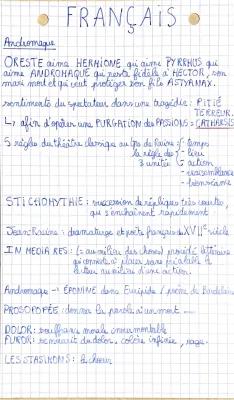 FRANÇAIS
Andromaque
ORESTE aime HERMIONE qui aime PYRRHUS qui
aime ANDROMAQUE qui reste fidèle à HECTOR, son
mari mort et qui veut protéger son fils ASTYANAX.
sentiments du spectateur dans une tragédie: PITIÉ
TERREUR
↳ afin d'opérer une PURGATION des PASSIONS = CATHARSIS
5 règles du théâtre classique au de Racine: - temps
la règle des - lieu
3 unités - action
- vraisemblance
- bienséance
STICHOMYTHIE: succession de répliques très courtes,
qui s'enchaînent rapidement
Jean Racine: dramaturge et poète français du XVIIe siècle
IN MEDIA RES: (= au milieu des choses) procédé littéraire
qui consiste à placer sans préalable le
lecteur au milieu d'une action.
Andromaque → ÉPONINE dans Euripide / poème de Baudelaire
PROSOPOPÉE: donner la parole à un mort ...
DOLOR: souffrance morale insurmontable
FUROR: du dolor, colère infinie, rage.
LES STASIMONS: le chœur